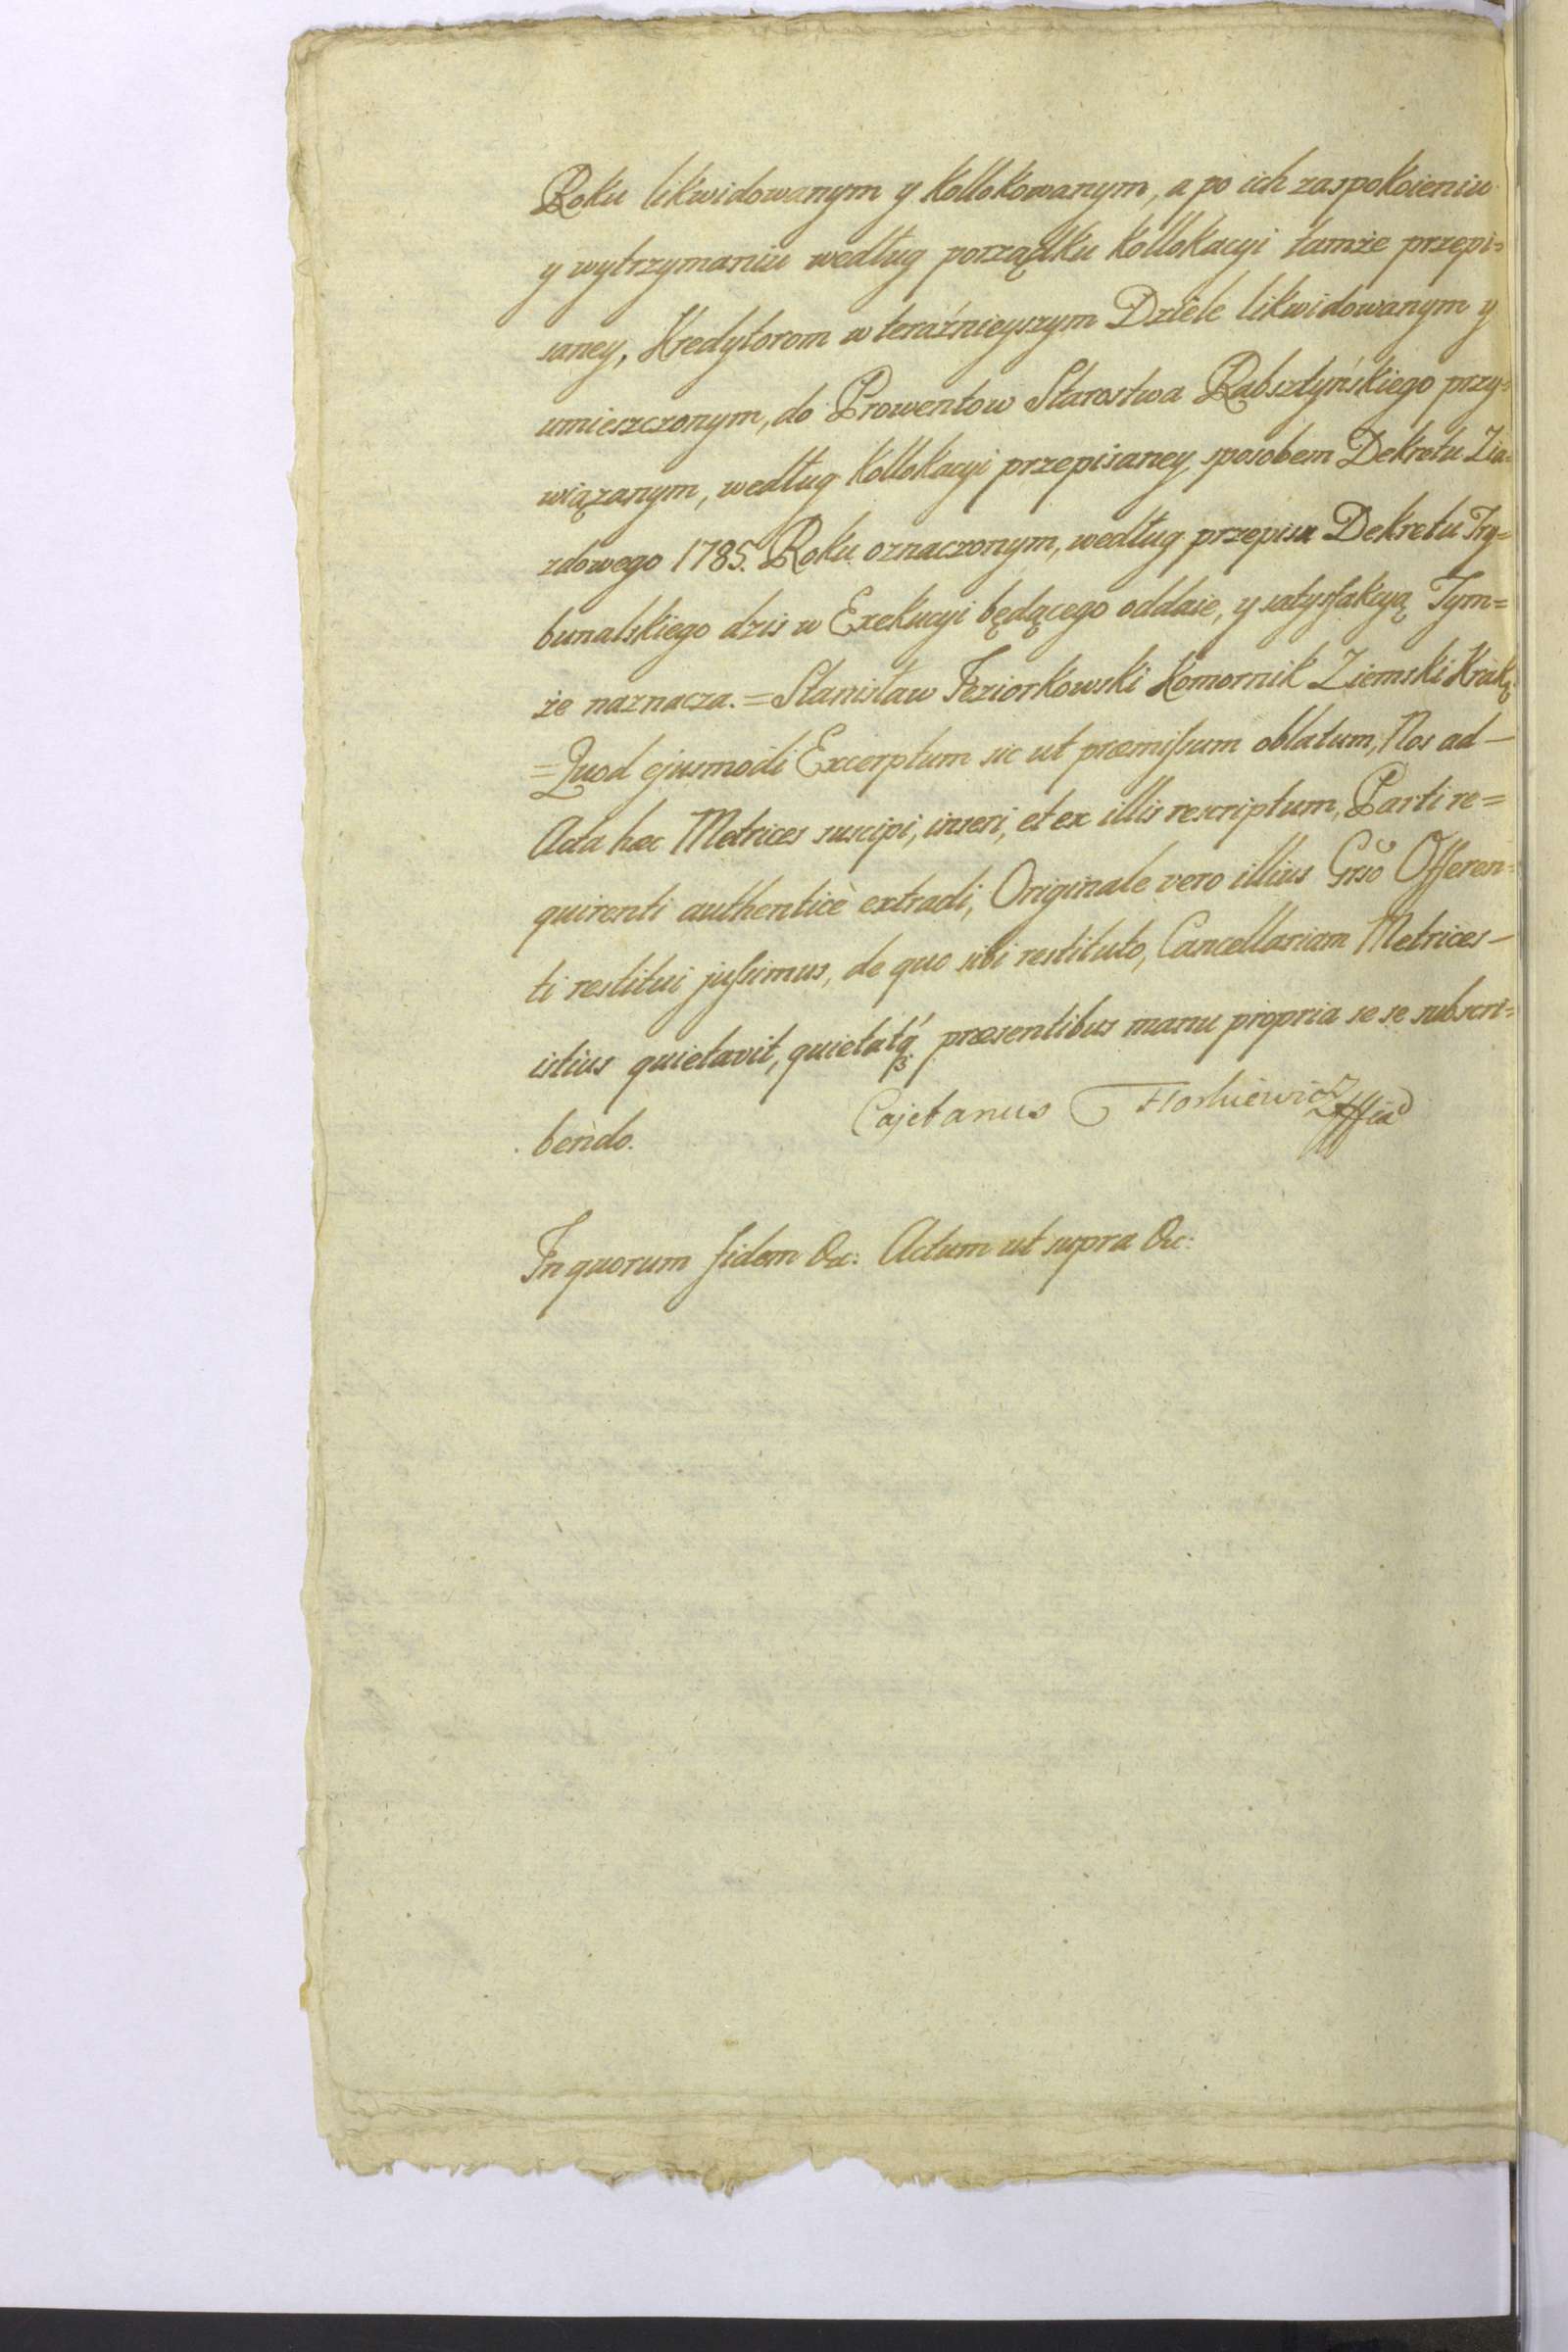 Roku likwidowanym y kollokowanym, a po ich zaspokoieniu
y wytrzymaniu według porządku kollokacyi tamże przepi=
saney, Kredytorom w teraźnieyszym Dziele likwidowanym y
umieszczonym, do Prowentow Starostwa Rabsztyńskiego przy=
wiązanym, według kollokacyi przepisaney, sposobem Dekretu Zia=
zdowego 1785. Roku oznaczonym, według przepisu Dekretu Try=
bunalskiego dzis w Exekucyi będącego oddaie, y satysfakcyą Tym=
że naznacza. = Stanisław Jeziorkowski Komornik Ziemski Krak:
= Quod ejusmodi Excerptum sic ut præmissum oblatum, Nos ad —
Acta hæc Metrices suscipi, inseri, et ex illis rescriptum, Parti re=
quirenti authenticè extradi, Originale vero illius Gnso Offeren=
ti restitui jussimus, de quo sibi restituto, Cancellariam Metrices —
istius quietavit, quietatq́ præsentibus manu propria se se subscri=
bendo.
Cajetanus Florkiewicz
In quorum fidem &c: Actum ut supra &c: